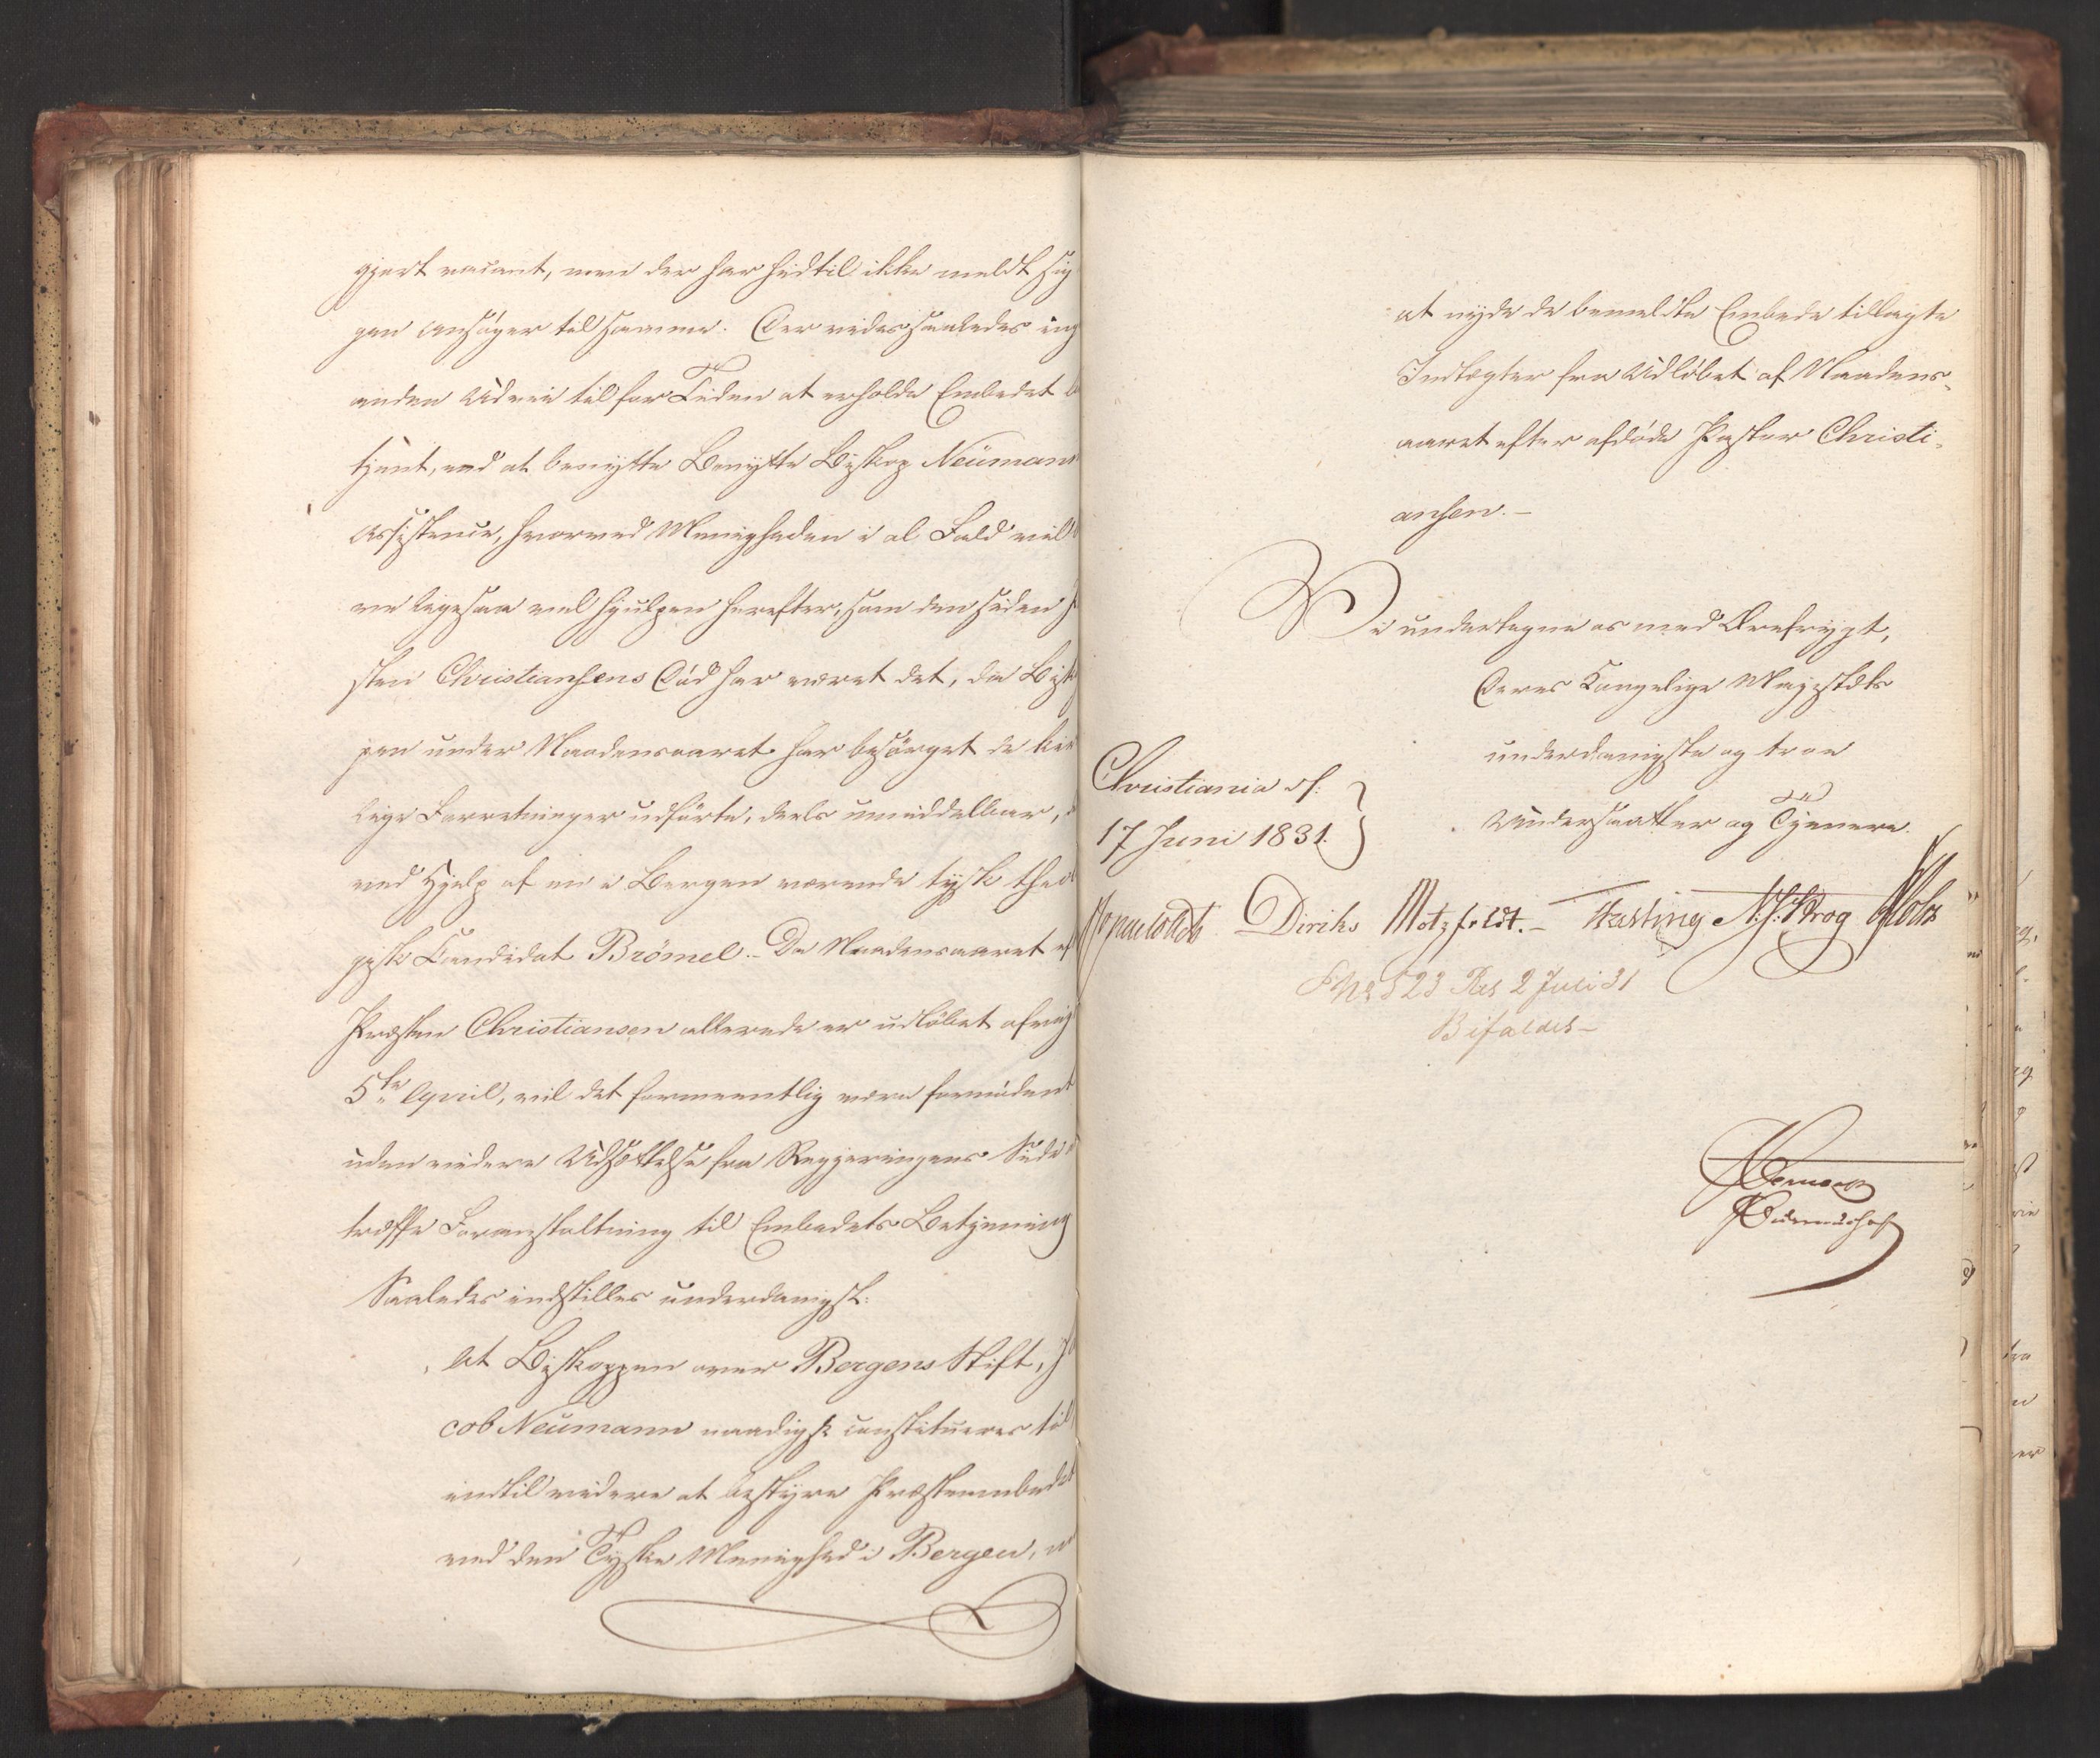 gjort vacant, men der har hidtil ikke meldt sig
gen Ansøger til samme. Der vides saaledes ing
anden Udvei til for Tiden at erholde Embedet be
tjent, end at benytte Benytte Biskop Neümans
Assistence, hvorved Menigheden i al Fald vil b
ve ligesaa vel hjulpen herefter, som den siden P
sten Christiansens Død har været det, da Bisk
pen under Naadensaaret har besørget de kir
lige Forretninger udførte, deels umiddelbar,
ved Hjelp af en i Bergen værende tysk theol
gisk Candidat Brömel.- Da Naadensaaret ef
Præsten Christiansen allerede er udløbet afvig
5te April, vil det formeentlig være fornødent
uden videre Udsættelse fra Regjeringens Side
træffe Foranstaltning til Embedets Betjening
Saaledes indstilles underdanigst:
At Biskoppen over Bergens Stift, J
cob Neümann naadigst constitueres til
indtil videre at bestyre Præsteembedet
ved den Tydske Menighed i Bergen,
at nyde de bemeldte Embede tillagte
Indtægter fra Udløbet af Naadens-
aaret efter afdøde Pastor Christi-
ansen.-
Vi undertegne os med Ærefrygt,
Deres Kongelige Majestæts
underdanigste og troe
Undersaatter og Tjenere.
Christiania d:
17 Juni 1831.
Diriks Motzfeldt.- Fasting N. J. Krog Holst
No 523 Res 2 Juli 31
Bifaldes-